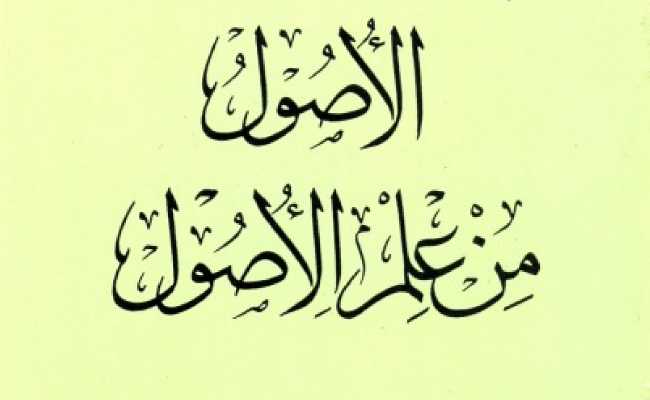 الأُصُولُ
مِنْ عِلْمِ الأُصُولِ